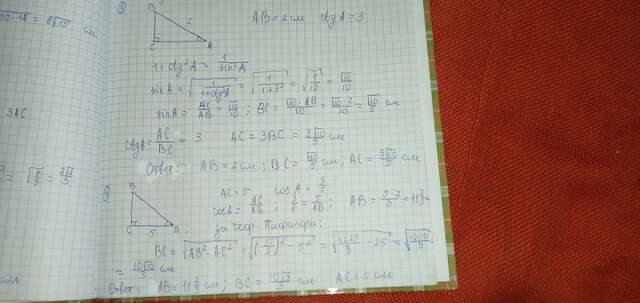 √50·18 = 6√15 см
3AC
= √(8/9) = 2√2/3
см
B
2
C A
AB = 2 см ctgA = 3
1 + ctg²A = 1/sin²A
sinA = √(1/(1+ctg²A)) = √(1/(1+3²)) = √(1/10) = √10/10
sinA = BC/AB = √10/10 ; BC = √10·AB/10 = √10·2/10 = √10/5 см
ctgA = AC/BC = 3 AC = 3BC = 3√10/5 см
Ответ: AB = 2 см ; BC = √10/5 см ; AC = 3√10/5 см
B
C 5 A
AC = 5 cosA = 3/7
cosA = AC/AB ; 3/7 = 5/AB ; AB = 5·7/3 = 11 2/3
за теор Піфагора:
BC = √(AB² - AC²) = √((35/3)² - 5²) = √(1225/9 - 25) = √(1000/9) =
= 10√10/3 см
Ответ: AB = 11 2/3 см ; BC = 10√10/3 см AC = 5 см